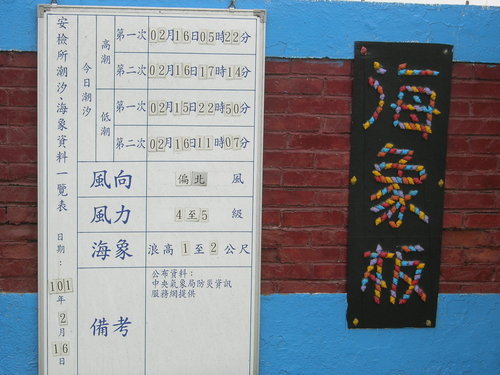 安檢所潮汐、海象資料一覽表
日期：101年2月16日
今日潮汐
高潮
第一次 02月16日05時22分
第二次 02月16日17時14分
低潮
第一次 02月15日22時50分
第二次 02月16日11時07分
風向 偏北 風
風力 4至5 級
海象 浪高 1 至 2 公尺
備考
公布資料：
中央氣象局防災資訊
服務網提供
海象板